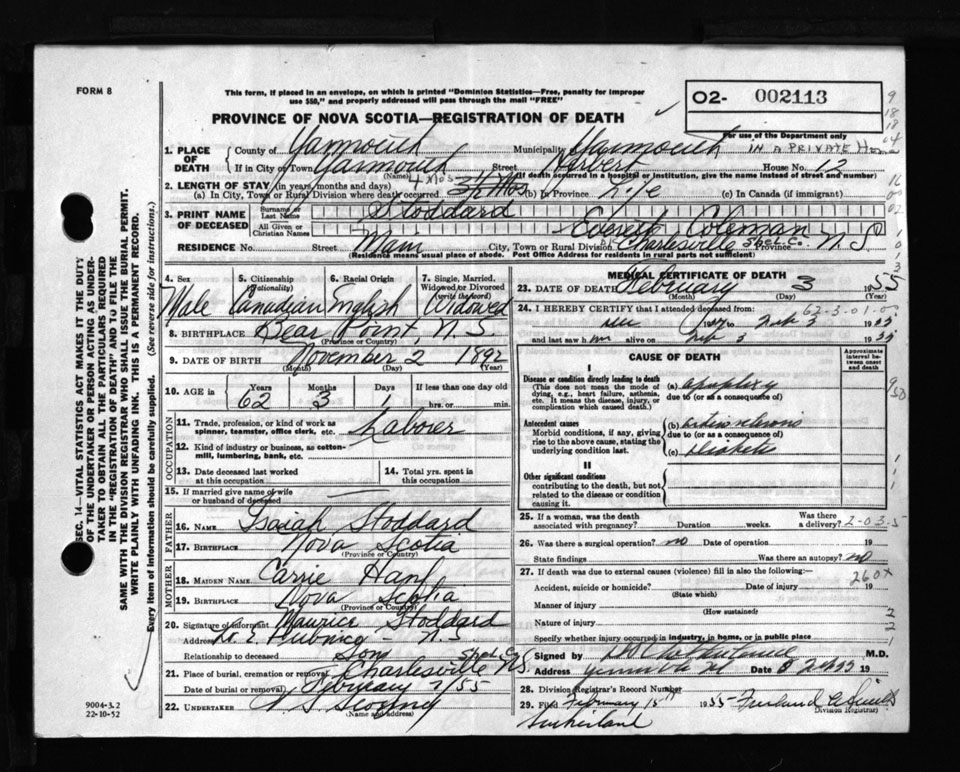 FORM 8
This form, if placed in an envelope, on which is printed "Dominion Statistics—Free, penalty for improper
use $50," and properly addressed will pass through the mail "FREE"
O2- 002113
PROVINCE OF NOVA SCOTIA—REGISTRATION OF DEATH
For use of the Department only
1. PLACE OF DEATH
County of Yarmouth Municipality Yarmouth IN A PRIVATE Home
If in City or Town Yarmouth Street Herbert House No. 12
(Name) (If death occurred in hospital or institution, give name instead of street and number)
2. LENGTH OF STAY (in years, months and days)
(a) In City, Town or Rural Division where death occurred (b) In Province Life (c) In Canada (if immigrant)
3. PRINT NAME OF DECEASED
Surname or Last Name Stoddard
All Given or Christian Names Everett Coleman
RESIDENCE No. Street Main City, Town or Rural Division Charlesville Shel. C. Province N S
(Residence means usual place of abode. Post Office Address for residents in rural parts not sufficient)
4. Sex
Male
5. Citizenship (Nationality)
Canadian
6. Racial Origin
English
7. Single, Married, Widowed or Divorced (write the word)
Widowed
8. BIRTHPLACE Bear Point, N.S.
(Province or Country)
9. DATE OF BIRTH November 2 1892
(Month) (Day) (Year)
10. AGE in Years Months Days If less than one day old
62 3 1 hrs. or min.
OCCUPATION
11. Trade, profession, or kind of work as spinner, teamster, office clerk, etc. Laborer
12. Kind of industry or business, as cotten-mill, lumbering, bank, etc.
13. Date deceased last worked at this occupation
14. Total yrs. spent in this occupation
15. If married give name of wife or husband of deceased
FATHER
16. NAME Isaiah Stoddard
17. BIRTHPLACE Nova Scotia
(Province or Country)
MOTHER
18. MAIDEN NAME Carrie
19. BIRTHPLACE Nova Scotia
(Province or Country)
20. Signature of informant Maurice Stoddard
Address Pubnico - N.S
Relationship to deceased Son
21. Place of burial, cremation or removal Charlesville Shel. C. N.S.
Date of burial or removal February /55
22. UNDERTAKER
(Name and address)
MEDICAL CERTIFICATE OF DEATH
23. DATE OF DEATH February 3 1955
(Month) (Day) (Year)
24. I HEREBY CERTIFY that I attended deceased from: 62-3-01-0
Dec to Feb 3 1955
and last saw him alive on Feb 3 1955
CAUSE OF DEATH
Approximate interval between onset and death
I
Disease or condition directly leading to death
(This does not mean the mode of dying, e.g., heart failure, asthenia, etc. It means the disease, injury, or complication which caused death.
(a) apoplexy
due to (or as a consequence of)
Antecedent causes
Morbid conditions, if any, giving rise to the above cause, stating the underlying condition last.
(b)
due to (or as a consequence of)
(c) Diabetes
II
Other significant conditions
contributing to the death, but not related to the disease or condition causing it.
25. If a woman, was the death associated with pregnancy? Duration weeks. Was there a delivery? 2-03-5
26. Was there a surgical operation? no Date of operation 19
State findings Was there an autopsy? no
27. If death was due to external causes (violence) fill in also the following: 260x
Accident, suicide or homicide? Date of injury 19
(State which)
Manner of injury
(How sustained)
Nature of injury
Specify whether injury occurred in industry, in home, or in public place
Signed by M.D.
Address Date 19
28. Division Registrar's Record Number
29. Filed February 15 1955
Division Registrar)
Sutherland
SEC. 14—VITAL STATISTICS ACT MAKES IT THE DUTY
OF THE UNDERTAKER OR PERSON ACTING AS UNDER-
TAKER TO OBTAIN ALL THE PARTICULARS REQUIRED
IN THE "REGISTRATION OF DEATH" AND TO FILE THE
SAME WITH THE DIVISION REGISTRAR WHO SHALL ISSUE THE BURIAL PERMIT.
WRITE PLAINLY WITH UNFADING INK. THIS IS A PERMANENT RECORD.
Every item of information should be carefully supplied. (See reverse side for instructions.)
9004-3.2
22-10-52